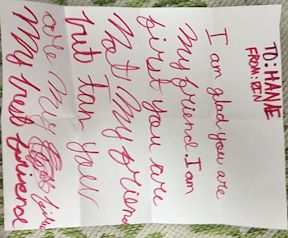 TO: HANNE
FROM: BEN
I am glad you are
My friend. I am
first you are
Not My friend
but Tan your
are My
My best firiend